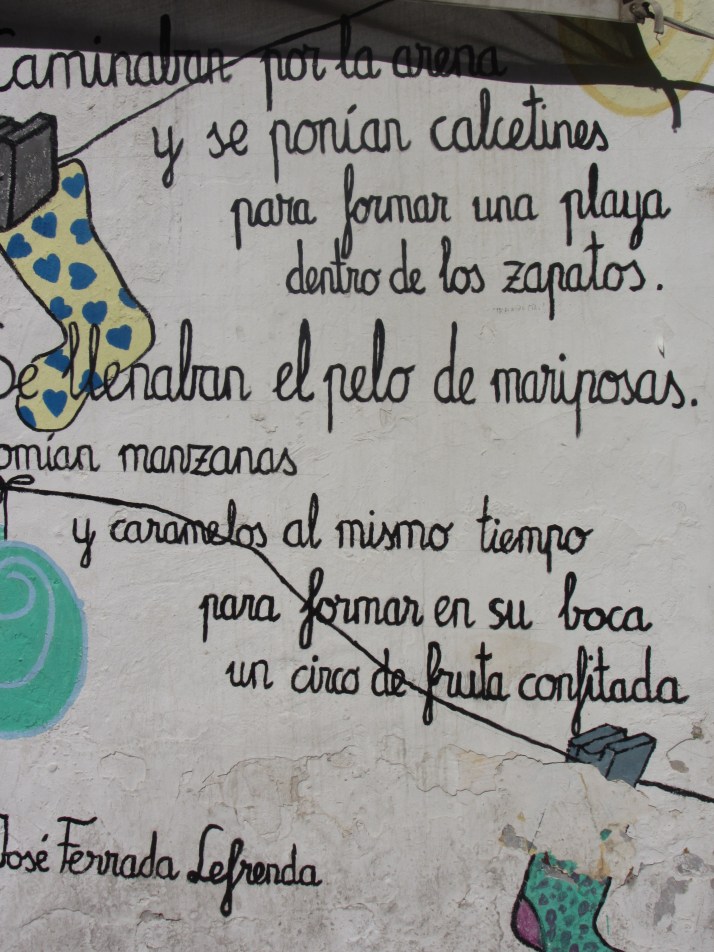 Caminaban por la arena
y se ponían calcetines
para formar una playa
dentro de los zapatos.
Se llenaban el pelo de mariposas.
omían manzanas
y caramelos al mismo tiempo
para formar en su boca
un circo de fruta confitada
José Ferrada Lefrenda